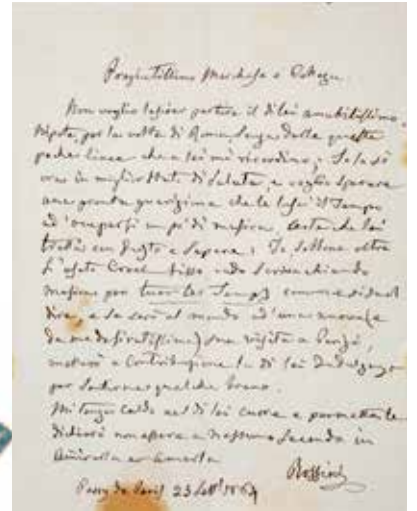 Pregiatissimo Marchese e Collega
Non voglio lasciar partire il di lei amabilissimo
Nipote, per la volta di Roma senza dargli queste
poche linee che a lei mi ricordino; La so
ora in miglior stato di salute, e voglio sperare
una pronta guarigione che le lasci il tempo
ad occuparsi un po' di musica, Arte che lei
tratta con gusto e sapere; Io sebbene oltre
vado
musica per tuer les Temps comme si dice
e se sarò al mondo ad una nuova (e
da me desiratissima) sua visita a Parigi,
metterò a contribuzione la di lei Indulgenza
per qualche brano.
Mi tenga caldo nel di lei cuore e permetta le
dichiari non essere a nessuno secondo in
amicizia
Rossini
Passy de Paris 23 1864